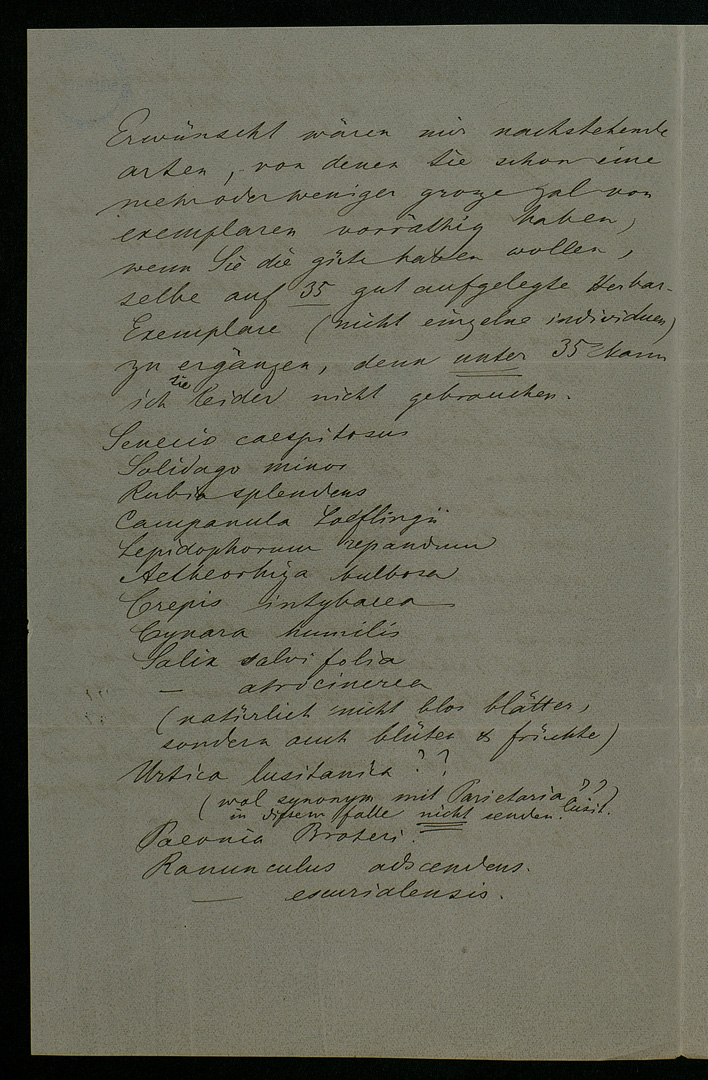 Erwünscht wären mir nachstehende
arten, von denen Sie schon eine
mehr oder weniger grosze zal von
exemplaren vorräthig haben,
wenn Sie die güte haben wollen,
selbe auf 35 gut aufgelegte Herbar-
Exemplare (nicht einzelne individuen)
zu ergänzen, denn unter 35 kann
ich sie leider nicht gebrauchen.
Senecio caespitosus
Solidago minor
Rubia splendens
Campanula Loeflingii
Lepidophorum repandum
Aetheorhiza bulbosa
Crepis intybacea
Cynara humilis
Salix salvifolia
— atrocinerea
(natürlich nicht blos blätter,
sondern auch blüten & früchte)
Urtica lusitanica ??
(wol synonym mit Parietaria lusit. ??)
in disem falle nicht senden.
Paeonia Broteri.
Ranunculus adscendens.
— escurialensis.